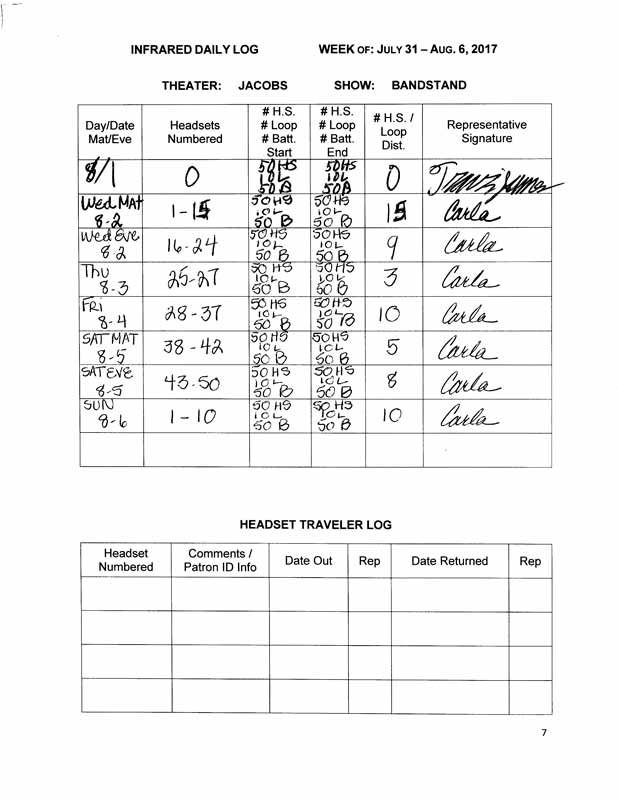 INFRARED DAILY LOG WEEK OF: JULY 31 – AUG. 6, 2017
THEATER: JACOBS SHOW: BANDSTAND
Day/Date Mat/Eve | Headsets Numbered | # H.S. # Loop # Batt. Start | # H.S. # Loop # Batt. End | # H.S. / Loop Dist. | Representative Signature
8/1 | 0 | 50HS 10L 50B | 50HS 10L 50B | 0 |
Wed MAT 8-2 | 1-15 | 50HS 10L 50 B | 50HS 10L 50 B | 15 | Carla
Wed Eve 8 2 | 16-24 | 50HS 10L 50 B | 50HS 10L 50 B | 9 | Carla
Thu 8-3 | 25-27 | 50 HS 10L 50 B | 50HS 10L 50 B | 3 | Carla
FRI 8-4 | 28-37 | 50 HS 10L 50 B | 50 HS 10L 50 B | 10 | Carla
SAT MAT 8-5 | 38-42 | 50HS 10L 50 B | 50HS 10L 50 B | 5 | Carla
SAT EVE 8-5 | 43-50 | 50 HS 10L 50 B | 50 HS 10L 50 B | 8 | Carla
SUN 8-6 | 1-10 | 50 HS 10L 50 B | 50 HS 10L 50 B | 10 | Carla
HEADSET TRAVELER LOG
Headset Numbered | Comments / Patron ID Info | Date Out | Rep | Date Returned | Rep
7